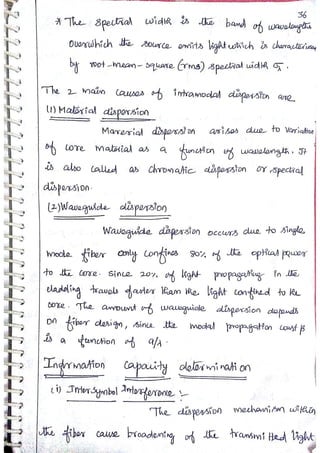 36
* The spectral width is the band of wavelengths
over which the source emits light which is characterized
by root-mean-square (rms) spectral width σ.
The 2 main causes of intramodal dispersion are
(1) Material dispersion
Material dispersion arises due to variation
of core material as a function of wavelength. It
is also called as chromatic dispersion or, spectral
dispersion.
(2) Waveguide dispersion
Waveguide dispersion occurs due to single
mode fiber only confines 80% of the optical power
to the core. Since 20% of light propagating in the
cladding travels faster than the light confined to the
core. The amount of waveguide dispersion depends
on fiber design, since the modal propagation const β
is a function of a/λ.
Information Capacity determination
(i) InterSymbol Interference :-
The dispersion mechanism within
the fiber cause broadening of the transmitted light